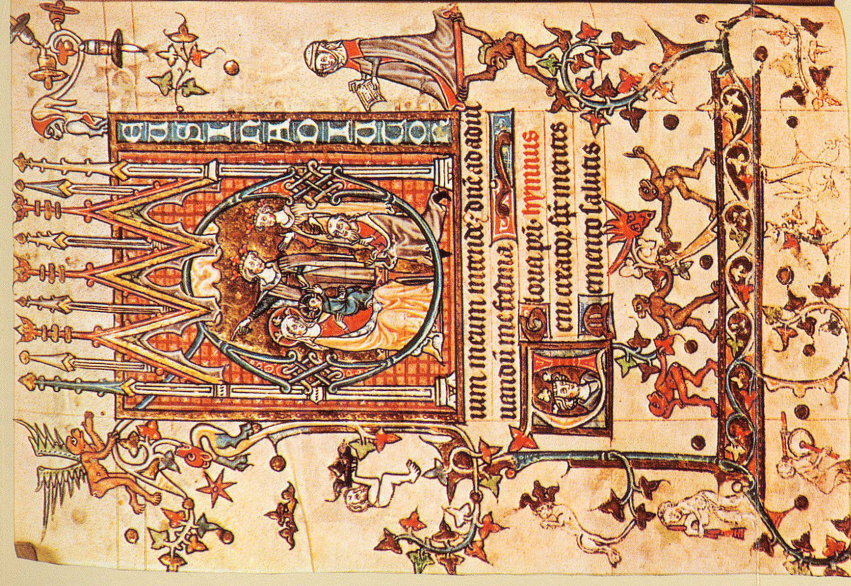 eus in adiutori
um meum intende. Dñe ad adiu
uandū me festina
Gloria pr̄i. hymnus
eni creator mentes
Memento salutis